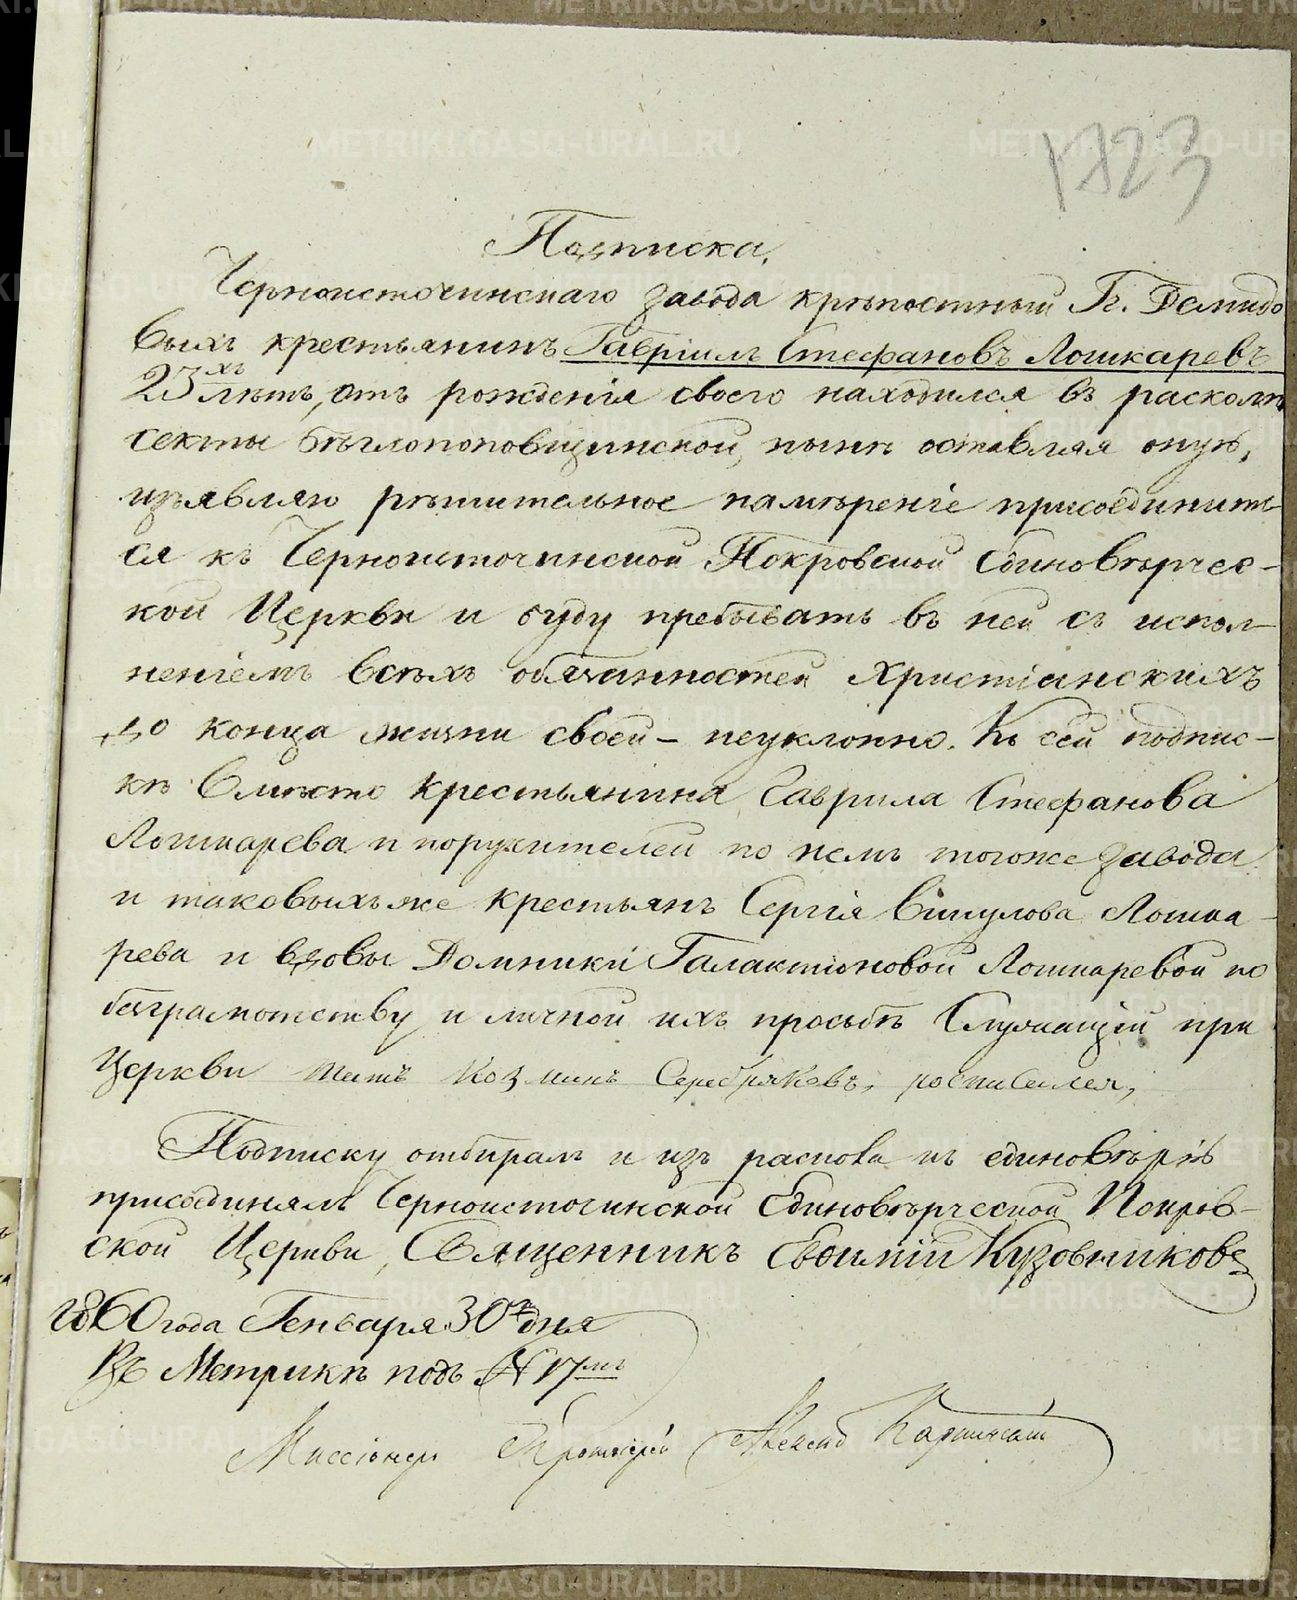 1723
Подписка.
Черноисточинскаго завода крѣпостный Гг. Демидо
выхъ крестьянинъ Гавріилъ Стефановъ Лошкаревъ
23хъ лѣтъ, отъ рожденія своего находился въ расколѣ
секты бѣглопоповщинской, нынѣ оставляя оную,
изъявляю рѣшительное намѣреніе присоединить-
ся къ Черноисточинской Покровской Единовѣрчес-
кой Церкви и буду пребывать въ ней съ испол-
неніемъ всѣхъ обязанностей христіанскихъ
до конца жизни своей – неуклонно. Къ сей подпис-
кѣ вмѣсто крестьянина Гаврила Стефанова
Лошкарева и поручителей по немъ тогоже завода
и таковыхъже крестьянъ Сергія Викулова Лошка-
рева и вдовы Домники Галактіоновой Лошкаревой по
безграмотству и личной ихъ просьбѣ Служащій при
Церкви Титъ Козминъ Серебряковъ, росписался,
Подписку отбиралъ и изъ раскола къ единовѣрію
присоединялъ Черноисточинской Единовѣрческой Покров-
ской Церкви, Священникъ Евфимій Кузовниковъ
1860 года Генваря 30го дня
Въ Метрикѣ подъ № 17мъ
Миссіонеръ Протоіерей
METRIKI.GASO-URAL.RU